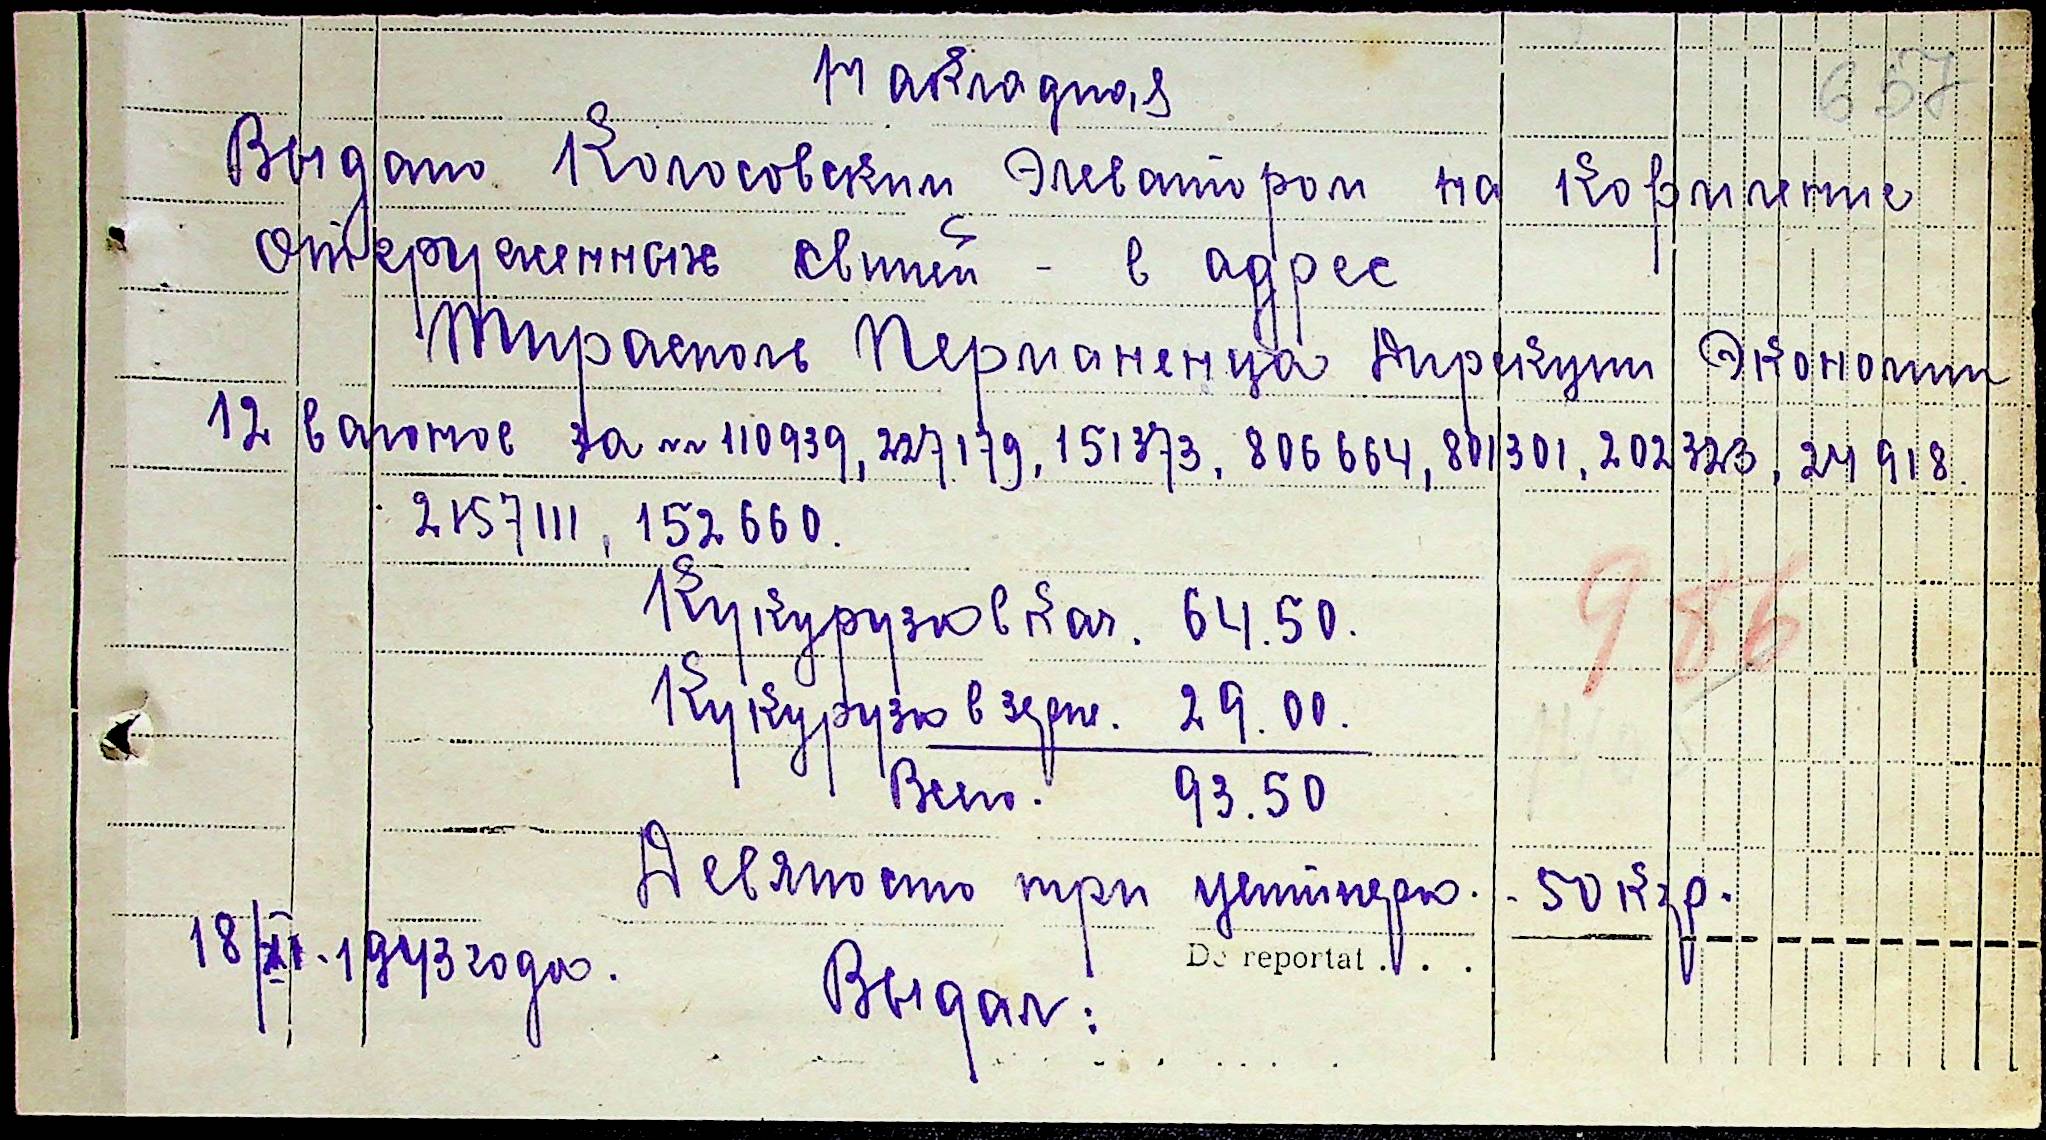 657
Накладная
Выдано Колосовским Элеватором на Кормление
отгруженных свиней - в адрес
Тирасполь Перманенца Дирекции Экономит
12 вагонов за №№ 110939, 227179, 151373, 806664, 801301, 202323, 24918.
2157111, 152660.
Кукуруза в кач. 64.50.
986
Кукуруза в зерне. 29.00.
Всего. 93.50
Девяносто три центнера. - 50 кгр.
18/XI. 1943 года.
De reportat . . . .
Выдал: